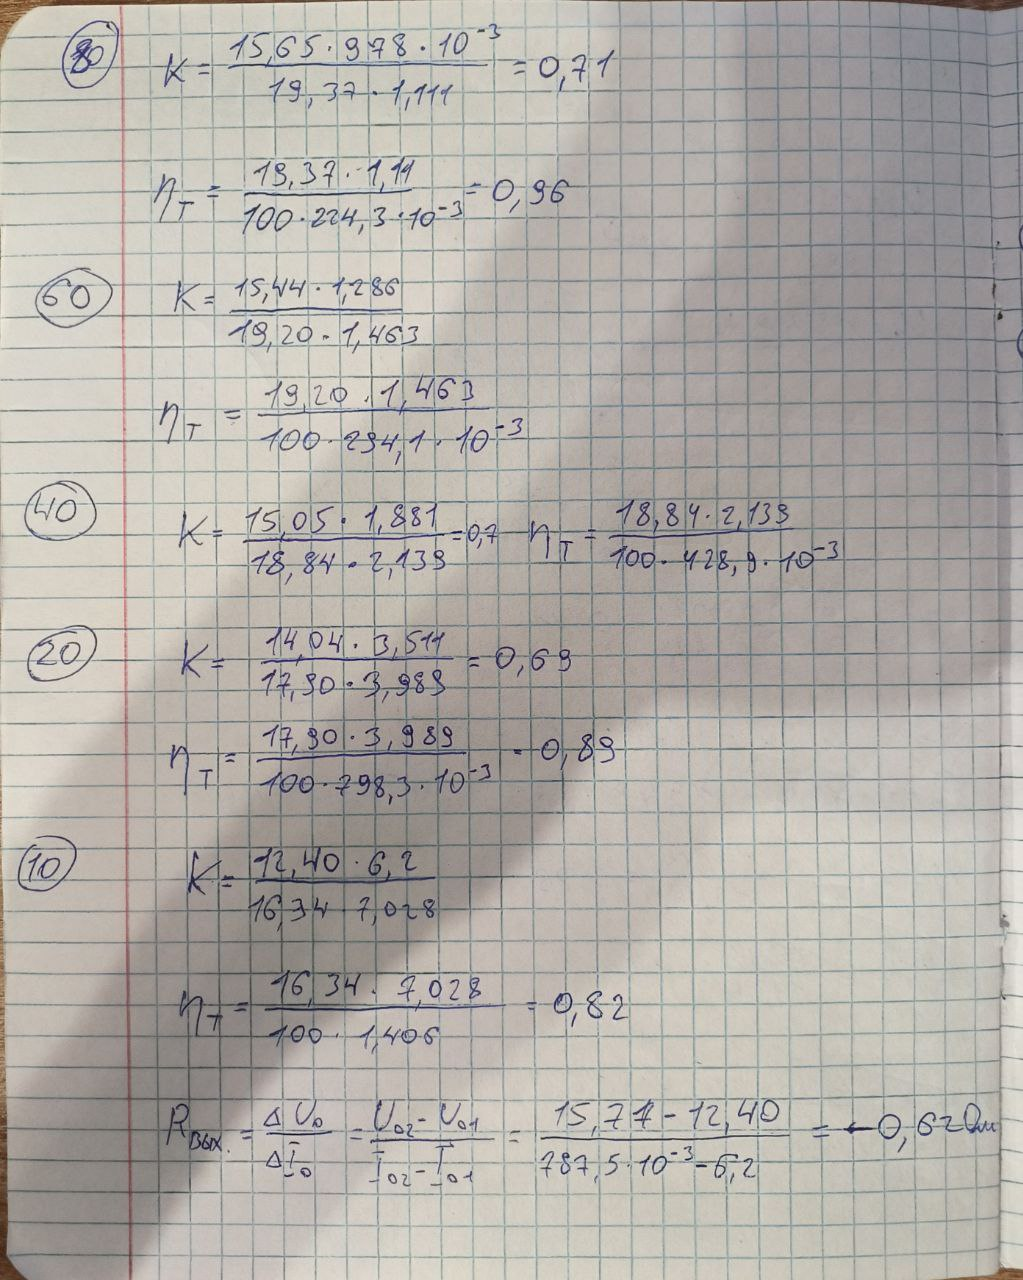 80 K = (15,65 · 978 · 10⁻³) / (19,37 · 1,111) = 0,71
η_T = (19,37 · 1,11) / (100 · 224,3 · 10⁻³) = 0,96
60 K = (15,44 · 1,286) / (19,20 · 1,463)
η_T = (19,20 · 1,463) / (100 · 294,1 · 10⁻³)
40 K = (15,05 · 1,881) / (18,84 · 2,139) = 0,7 η_T = (18,84 · 2,139) / (100 · 428,9 · 10⁻³)
20 K = (14,04 · 3,511) / (17,90 · 3,989) = 0,69
η_T = (17,90 · 3,989) / (100 · 798,3 · 10⁻³) = 0,89
10 K = (12,40 · 6,2) / (16,34 · 7,028)
η_T = (16,34 · 7,028) / (100 · 1,406) = 0,82
R_вых. = ΔU₀ / ΔI₀ = (U₀₂ - U₀₁) / (I₀₂ - I₀₁) = (15,77 - 12,40) / (787,5 · 10⁻³ - 6,2) = -0,62 Ом